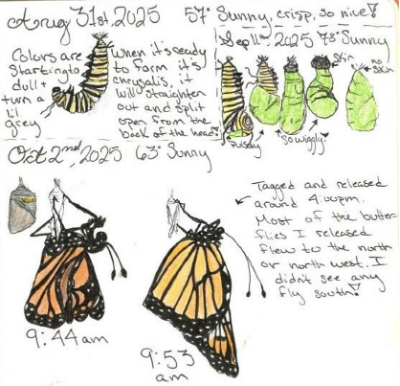 Aug 31st, 2025 57° Sunny, crisp, so nice!
Colors are
starting to
dull +
turn a
lil
grey
When it's ready
to form it's
chrysalis, it
will straighten
out and split
open from the
back of the head.
Sep 11th 2025 78° Sunny
skin
no
skin
Pulsey
so wiggly
Oct 2nd, 2025 63° Sunny
9:44 am
9:53
am
Tagged and released
around 4:00pm.
Most of the butter-
flies I released
flew to the north
or north west. I
didn't see any
fly south!